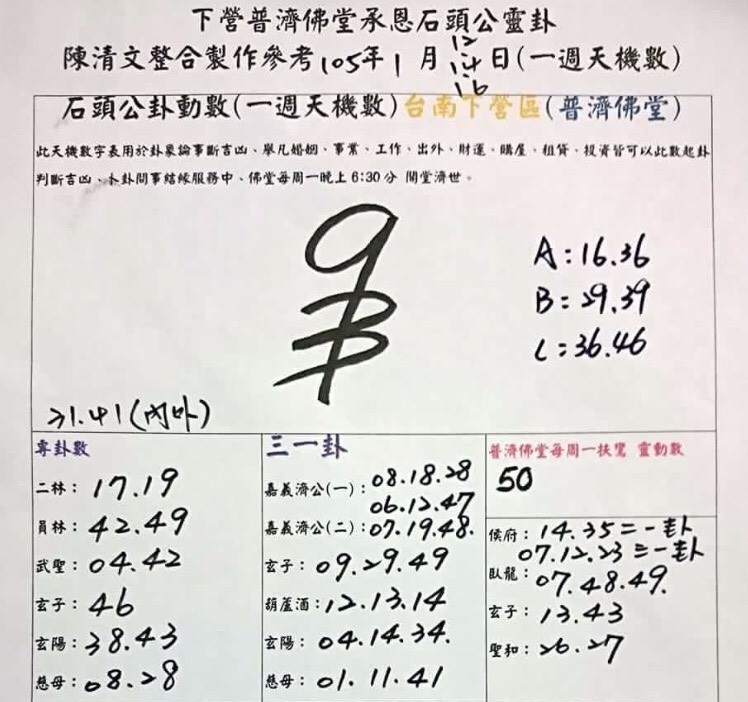 下營普濟佛堂承恩石頭公靈卦
12
陳清文整合製作參考105年1月14日(一週天機數)
16
石頭公卦動數(一週天機數)台南下營區(普濟佛堂)
此天機數字表用於卦象論事斷吉凶、舉凡婚姻、事業、工作、出外、財運、購屋、租賃、投資皆可以此數起卦
判斷吉凶、卜卦問事結緣服務中、佛堂每周一晚上6:30分 開堂濟世。
A:16.36
B:29.39
C:36.46
21.41(內外)
專卦數
二林:17.19
員林:42.49
武聖:04.42
玄子:46
玄陽:38.43
慈母:08.28
三一卦
嘉義濟公(一):08.18.28
06.12.47
嘉義濟公(二):07.19.48.
玄子:09.29.49
葫蘆酒:12.13.14
玄陽:04.14.34.
慈母:01.11.41
普濟佛堂每周一扶鸞 靈動數
50
侯府:14.35二一卦
07.12.23三一卦
臥龍:07.48.49.
玄子:13.43
聖和:26.27